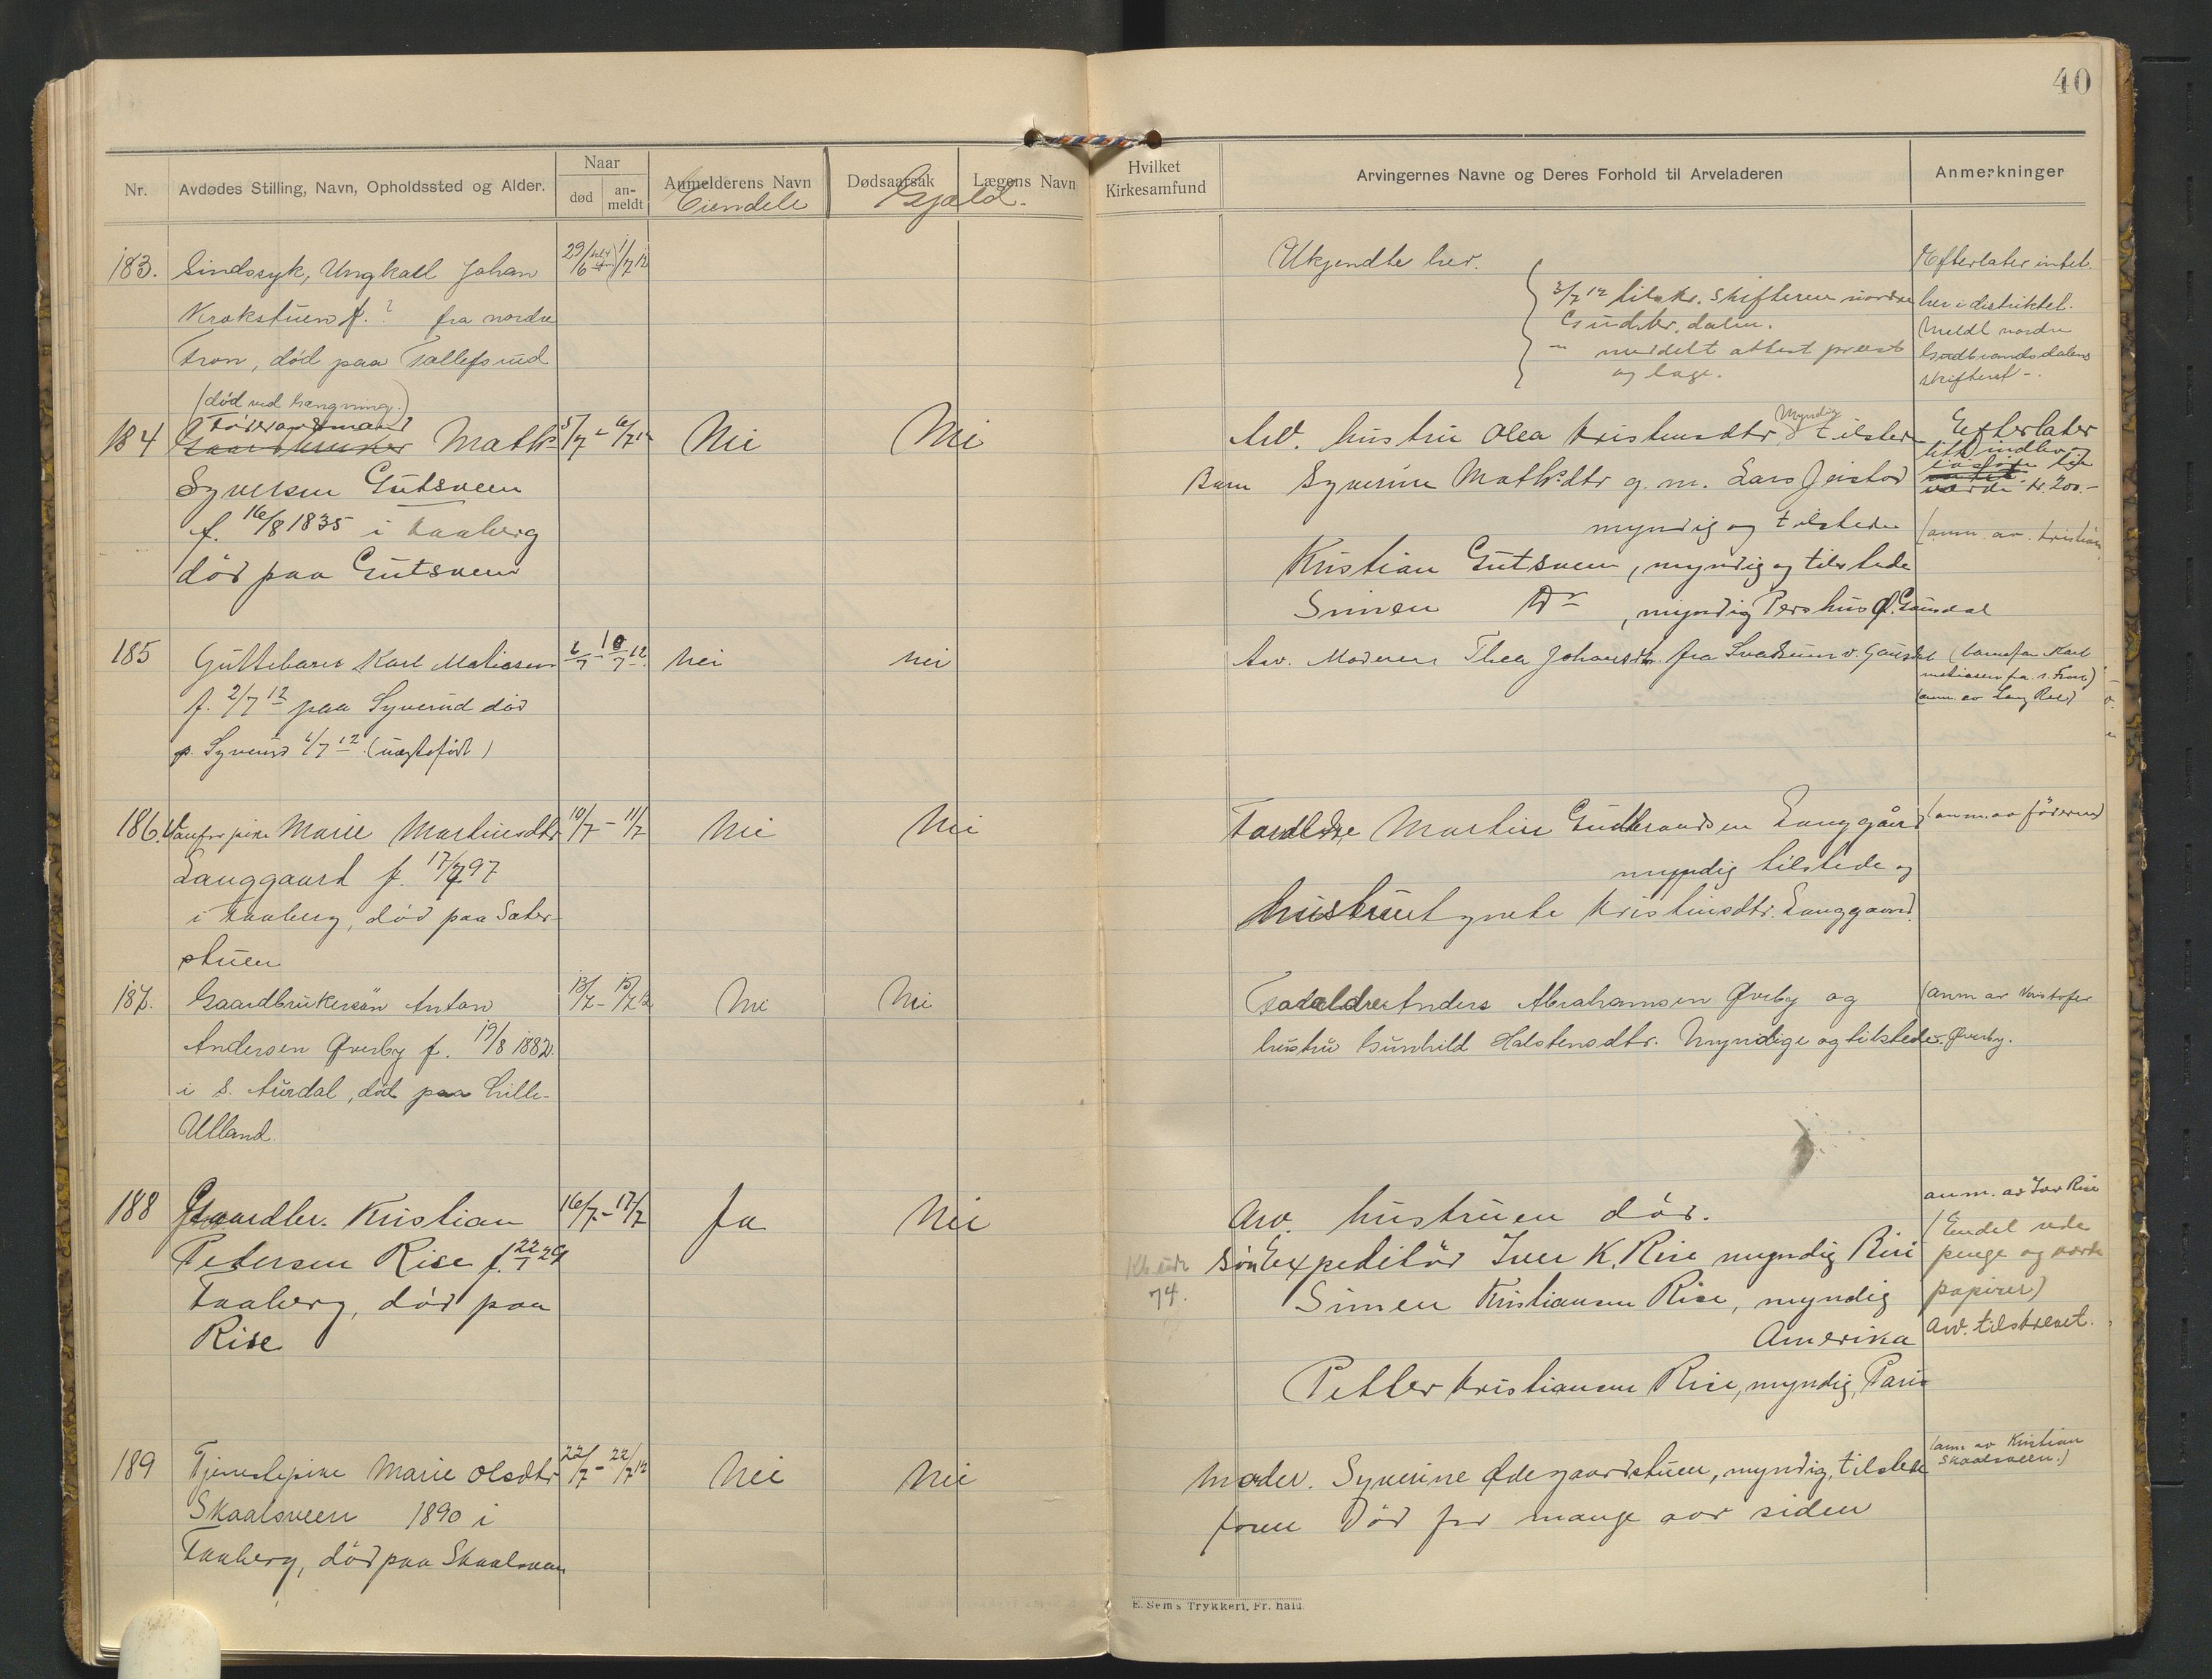 40
Nr.
Avdødes Stilling, Navn, Opholdssted og Alder.
Naar
død
an-
meldt
Anmelderens Navn
Eiendele
Dødsaarsak
Lægens Navn
Gjæld.
Hvilket
Kirkesamfund
Arvingernes Navne og Deres Forhold til Arveladeren
Anmerkninger
183. Sindssyk, Ungkall Johan 29/6 1/7 12
Krokstuen f. ? fra nordre
Fron, død paa Tollefsrud
(død ved hængning.)
Ukjendte her.
3/7 12 tilskr. Skifteren nordre
Gudbr. dalen.
meddelt attest prest
og læge.
Efterlater intet
her i distriktet.
Meldt nordre
Gudbrandsdalens
skifteret -.
184 Føderaadsmand
Gaardbruker Maths 5/7 - 6/7 12 Nei Nei
Syversen Gutsveen
f. 16/8 1835 i Faaberg
død paa Gutsveen
Arv. hustru Olea Kristensdtr, Myndig tilstede
Barn Syverine Mathsdtr g. m. Lars Jevstad
myndig og tilstede
Kristian Gutsveen, myndig og tilstede
Simen Do, myndig Pershus Ø. Gausdal
Efterlater
litt indbo og
værdi kr. 200.-
(anm. av. Kristian
185 Guttebarn Karl Matiasen 6/7 - 10/7 12 nei nei
f. 2/7 12 paa Syverud død
p. Syverud 6/7 12. (uægtefødt)
Arv. Moderen Thea Johansdtr. fra Svatsum v. Gausdal
(barnefar Karl
Matiasen fra s. Fron)
186. Ungpike Marie Martinsdtr 10/7 - 11/7 Nei Nei
Langgaard f. 17/7 97
i Faaberg, død paa Sæter-
stuen
Foreldre, Martin Gudbrandsen Langgård
myndig tilstede og
hustru Agnete Kristiansdtr. Langgaard.
(anm. av faderen)
187. Gaardbrukersøn Anton 13/7 - 15/7 12 Nei Nei
Andersen Øveby f. 19/8 1882.
i S. Aurdal, død paa Lille-
Ulland.
Foraeldre Anders Abrahamsen Øveby og
hustru Gunhild Halstensdtr. Myndige og tilstede.
(anm av Kristofer
Øveby.
188 Gaardbr. Kristian 16/7 - 17/7 Ja Nei
Petersen Rise f. 22/1 29
Faaberg, død paa
Rise
74.
Arv. hustruen død.
Søn Expeditør Iver K. Rise myndig Biri
Simen Kristiansen Rise, myndig
Amerika
Petter Kristiansen Rise, myndig, Paris
anm. av Iver Rise
(Endel rede
penge og værdi
papirer)
Arv. tilskrevet.
189 Tjenestepike Marie Olsdtr 22/7 - 22/7 12 Nei Nei
Skaalsveen 1890 i
Faaberg, død paa Skaalsveen
Moder. Syverine Ødegaardstuen, myndig, tilstede
faren Død for mange aar siden
(anm av Kristian
Skaalsveen.)
E. Sem's Trykkeri, Fr. hald.